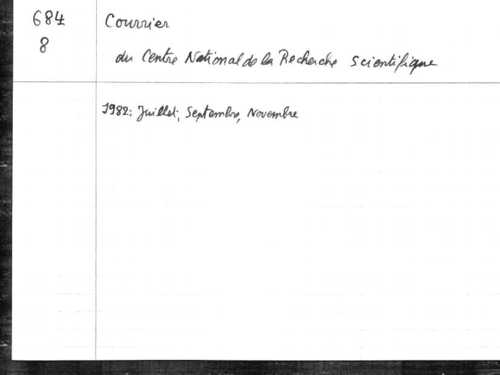 684 Courrier
8
du Centre National de la Recherche Scientifique
1982: Juillet, Septembre, Novembre